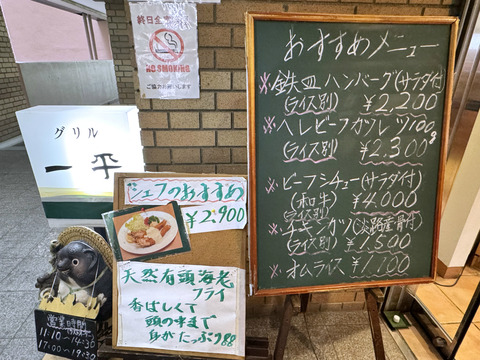 終日全
NO SMOKING
ご協力お願いします
グリル
一平
シェフのおすすめ
¥2,900
天然有頭海老
フライ
香ばしくて
頭の中まで
身がたっぷり
おすすめメニュー
※鉄皿ハンバーグ(サラダ付)
(ライス別) ¥2,200
※ヘレビーフカツレツ100g
(ライス別) ¥2,300
※ビーフシチュー(サラダ付)
(和牛) ¥4,000
(ライス別)
※チキンカツ(淡路産骨付)
(ライス別) ¥1,500
※オムライス ¥1,100
営業時間
11:10〜14:30
17:00〜19:30